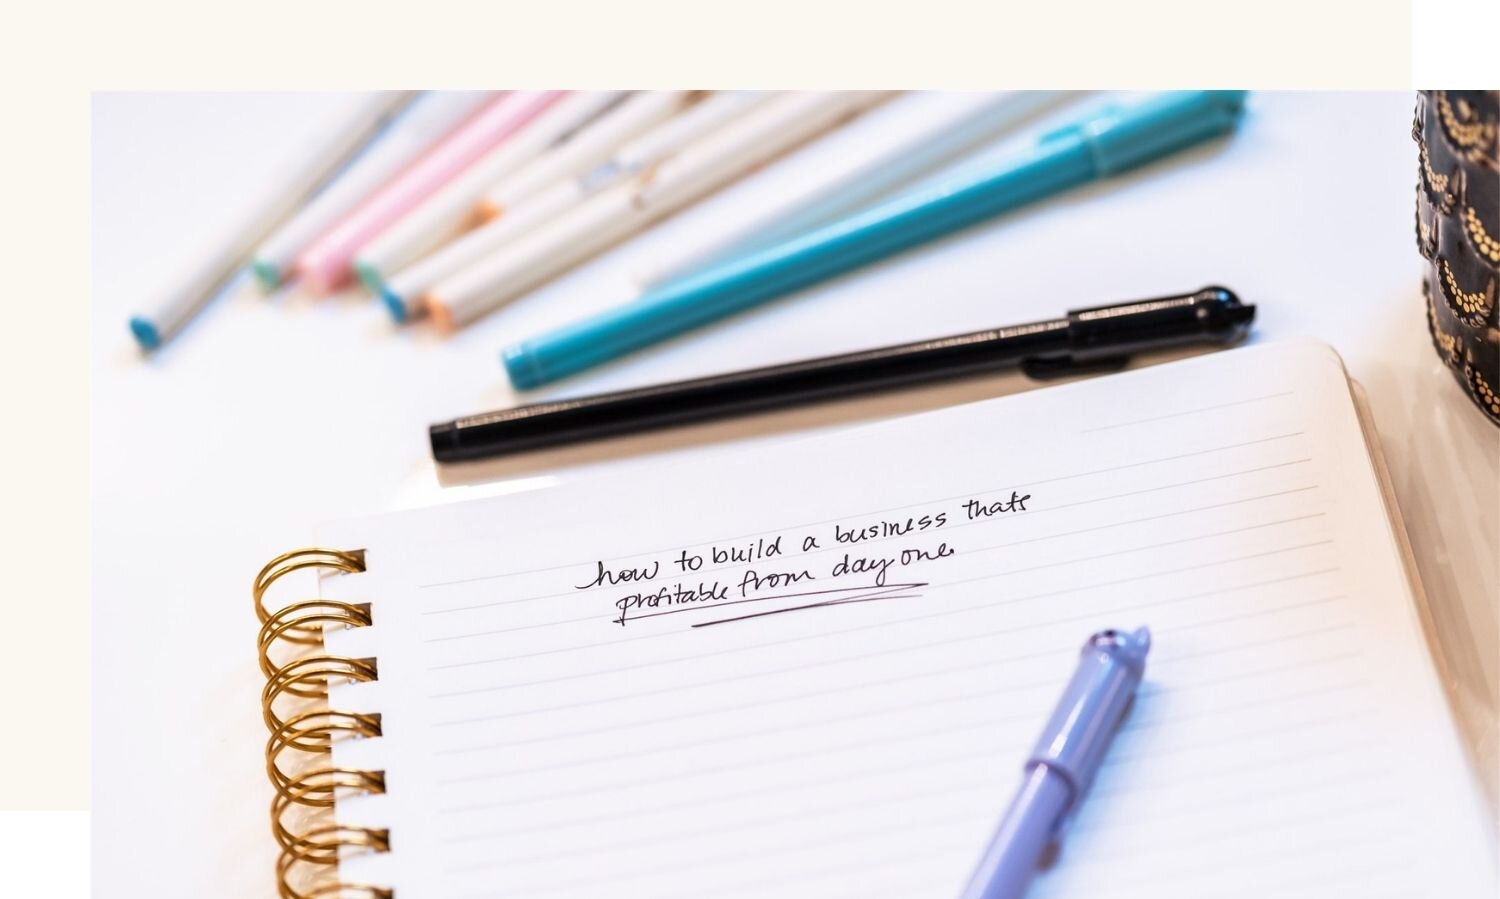 how to build a business thats
profitable from day one.